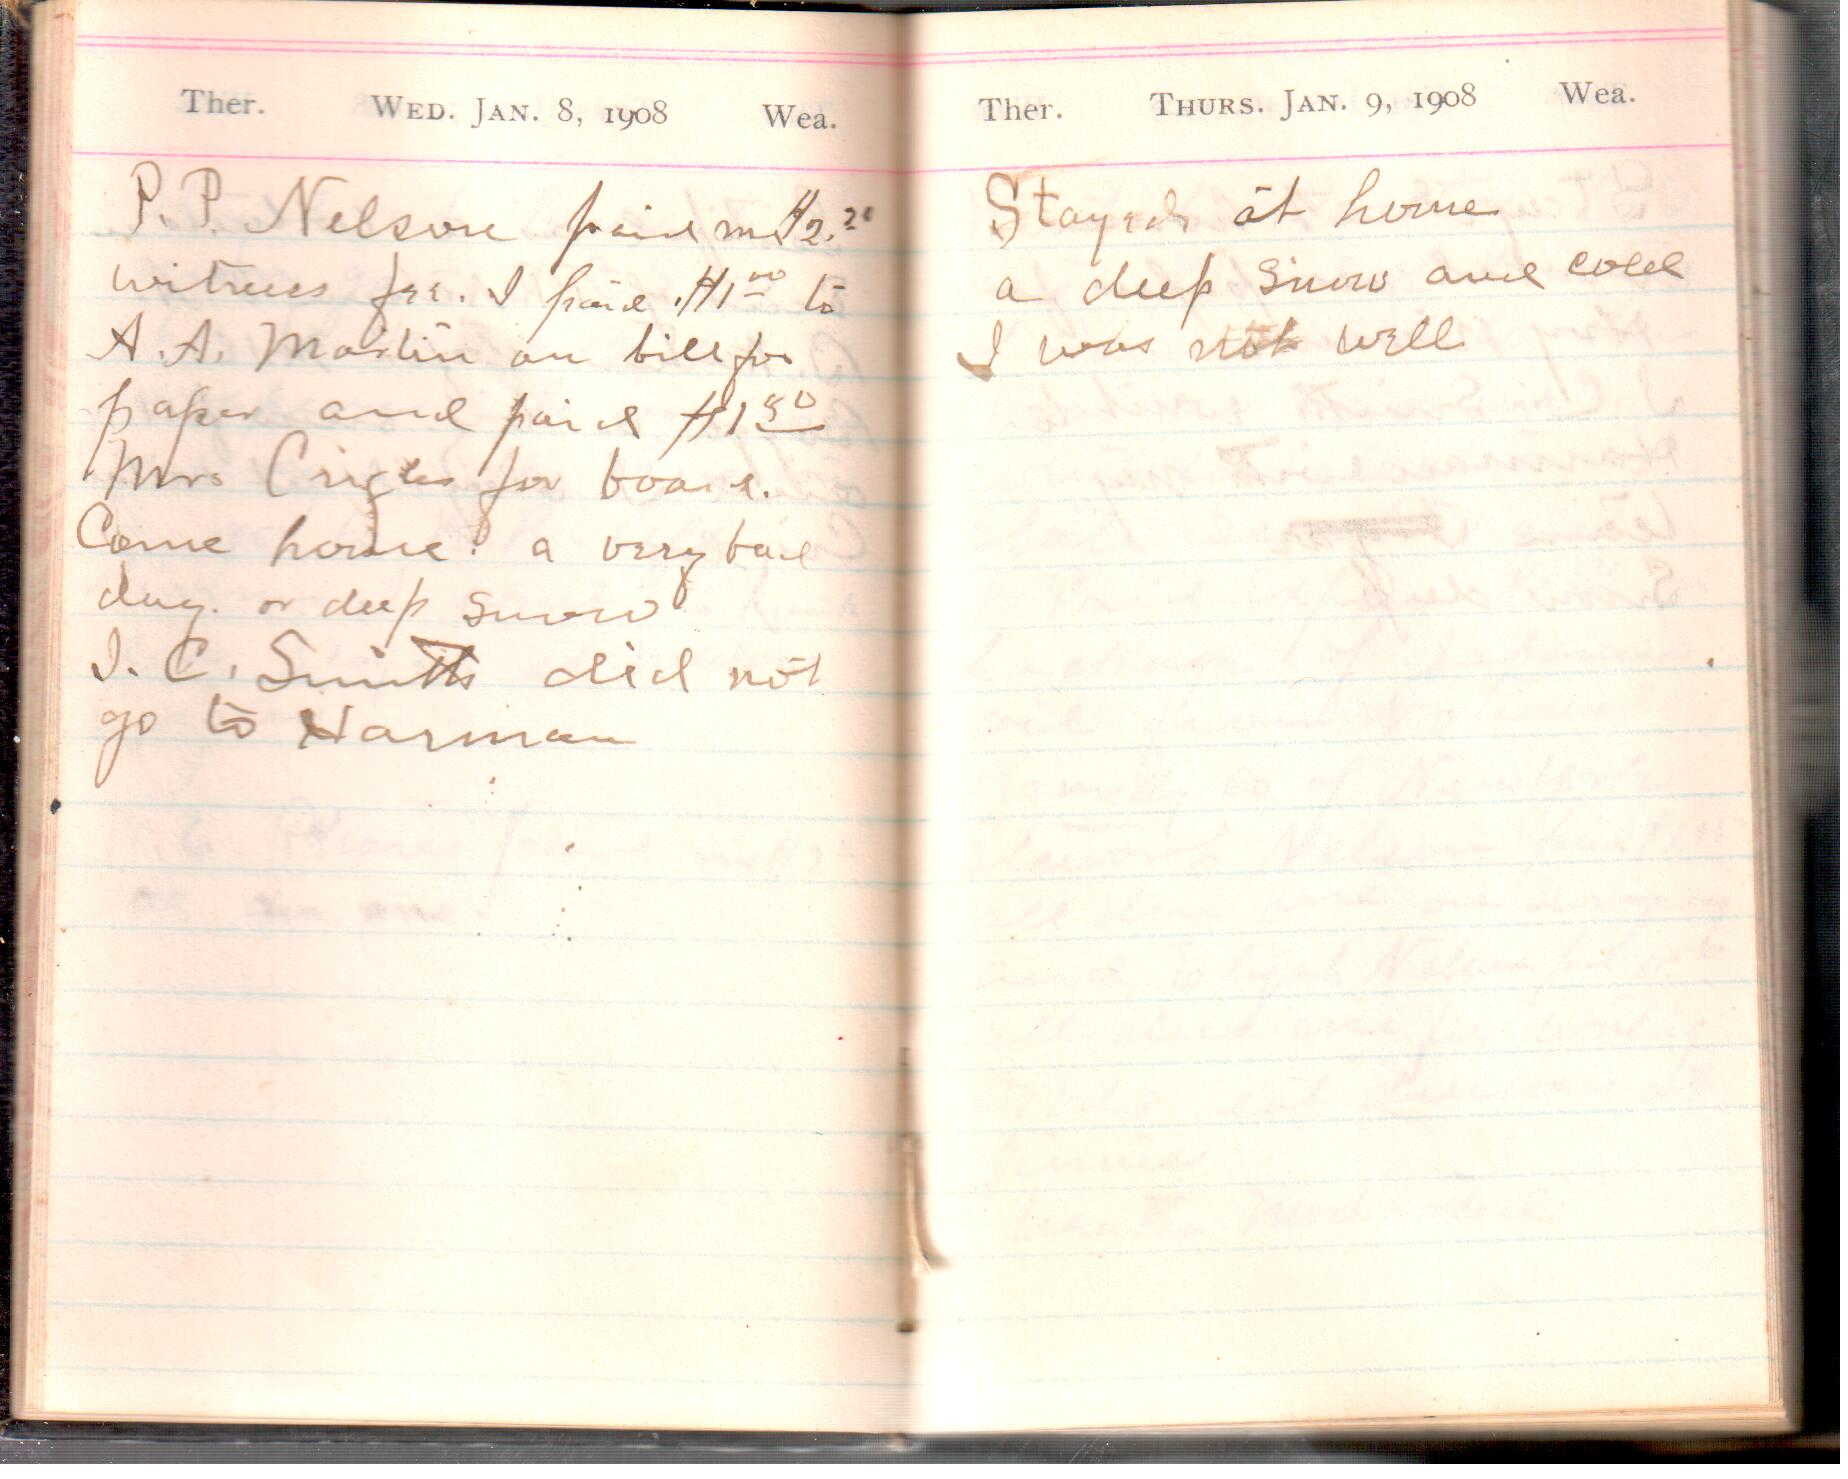 Ther. WED. JAN. 8, 1908 Wea.
P. P. Nelson paid me $2.20
witness fee. I paid $1.00 to
A. A. Martin on bill for
paper and paid $1.50
Mrs for board.
Come home. a very bad
day. or deep snow
I. C. Smith did not
go to Harman
Ther. THURS. JAN. 9, 1908 Wea.
Stayed at home
a deep snow and cold
I was not well